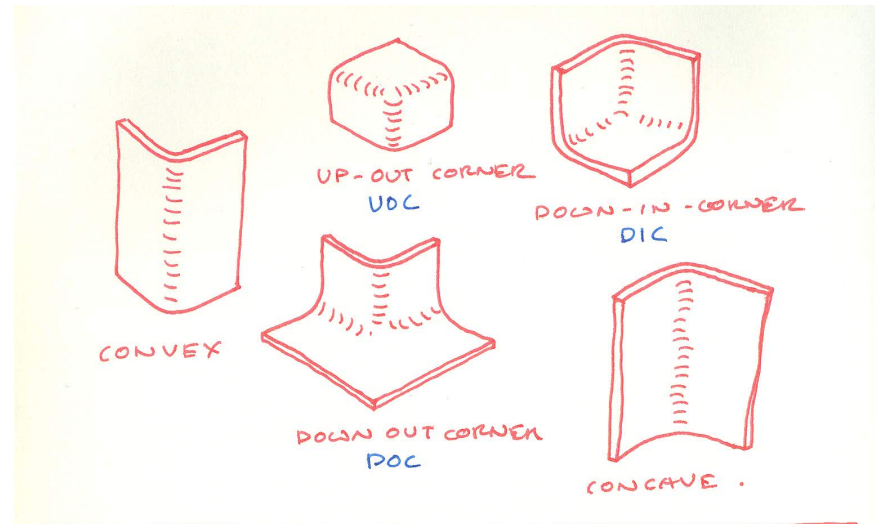 UP-OUT CORNER
UOC
DOWN-IN-CORNER
DIC
CONVEX
DOWN OUT CORNER
DOC
CONCAVE .